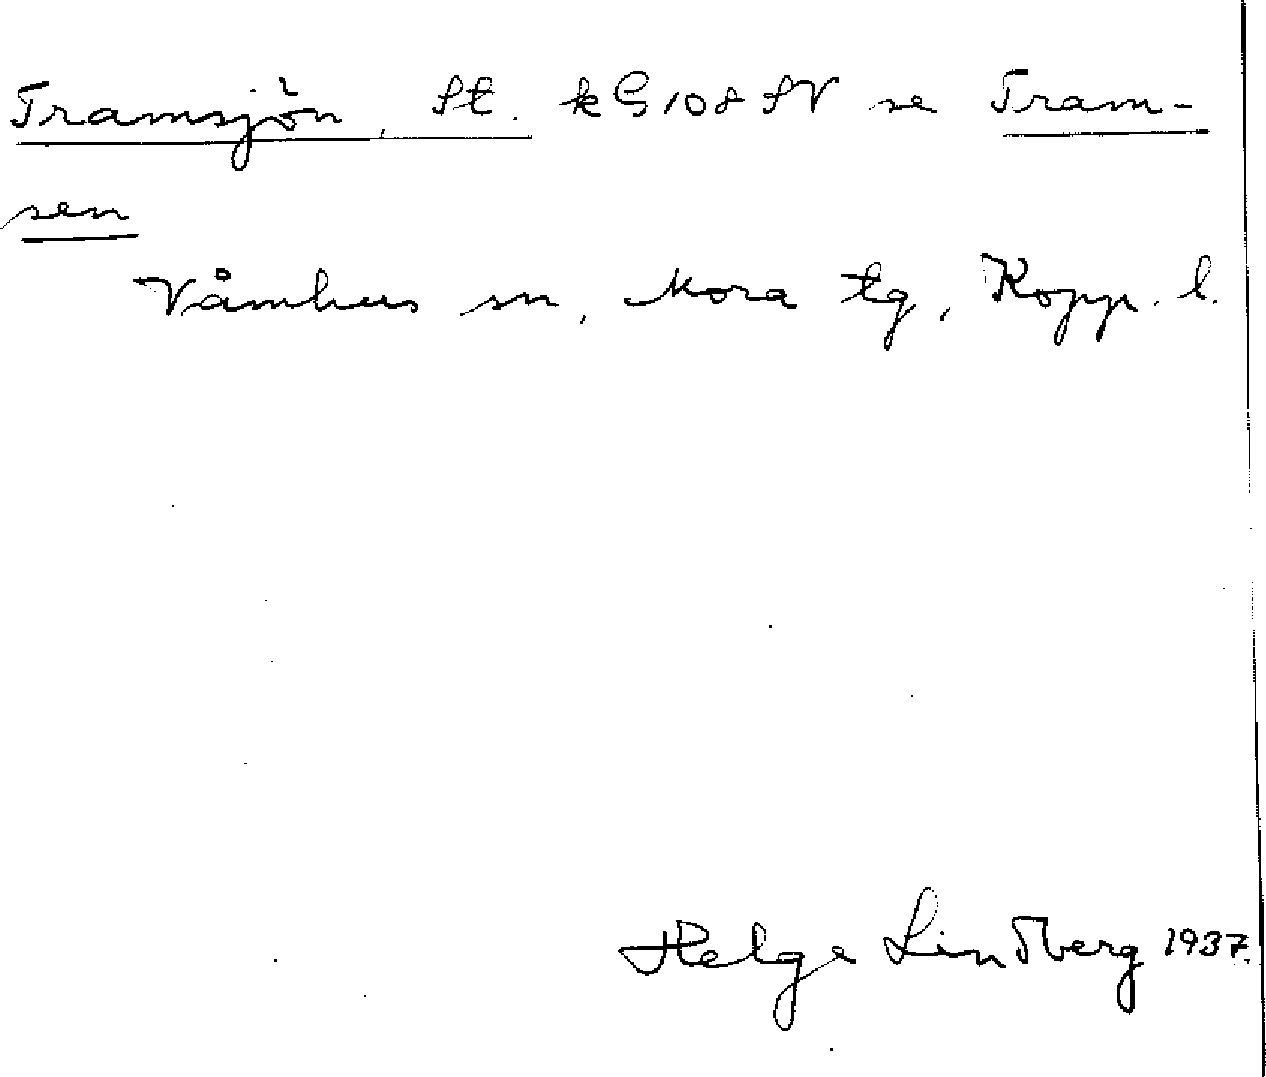 Tramsjön, St. kG 108 SV se Tram-
sen
Våmhus sn, Mora tg, Kopp. l.
Helge Lindberg 1937.